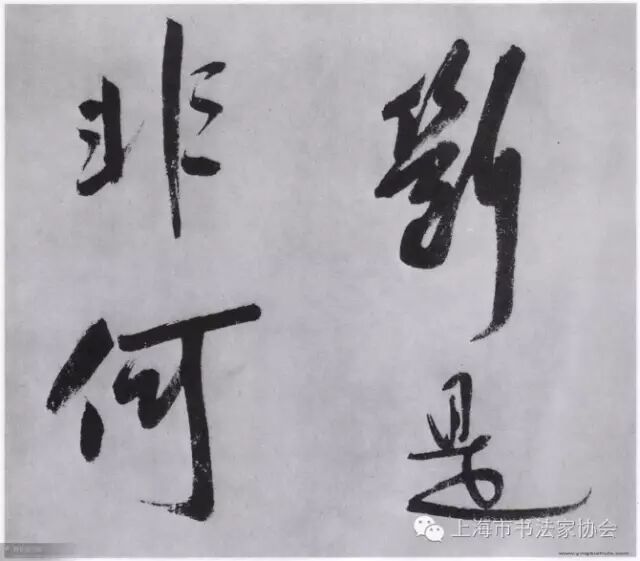 斷是
非何
上海市书法家协会